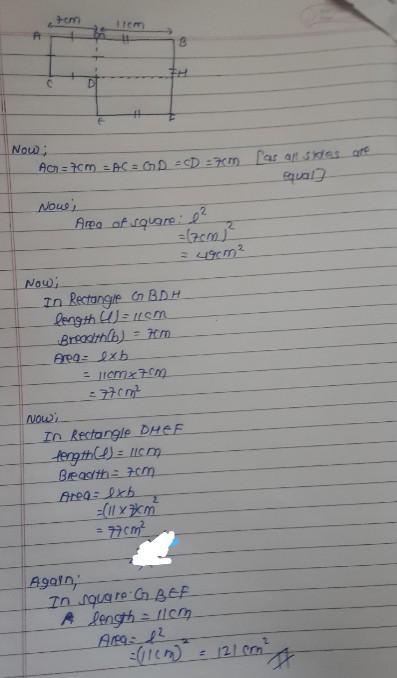 7cm 11cm
A G B
H
C D
E F
Now;
AG = 7cm = AC = GD = CD = 7cm [as all sides are
equal]
Now;
Area of square: l²
=(7cm)²
= 49cm²
Now;
In Rectangle GBDH
length (l) = 11cm
Breadth(b) = 7cm
Area= l×b
= 11cm×7cm
= 77cm²
Now;
In Rectangle DHEF
length(l) = 11cm
Breadth = 7cm
Area = l×b
=(11×7)cm²
= 77cm²
Again;
In square GBEF
length = 11cm
Area= l²
=(11cm)² = 121cm²